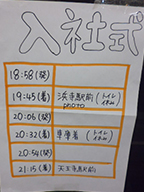 入社式
18:58(発)
19:45(着) 浜寺駅前 (トイレ
PHOTO
20:06(発)
20:32(着) (トイレ
20:54(発)
21:15(着) 天王寺駅前